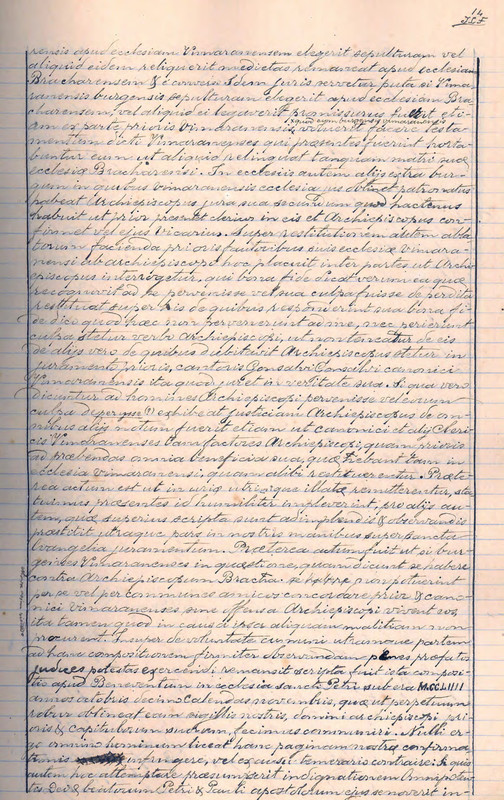 14
J.S.F.
rensis apud ecclesiam Vimaranensem elegerit sepulturam vel
aliquid eidem reliquerit medietas remaneat apud ecclesiam
Bracharensem & è converso idem juris servetur puta si Vima
ranensis burgensis sepulturam elegerit apud ecclesiam Bra
charensem, vel aliquid ei legaverit promissurus fuerit eti
am ex parte prioris Vimaranensis,
si quid ergo burgensis vimaranensis
voluerit facere testa
mentum dicti Vimaranenses qui presentes fuerint horta
buntur eum ut aliquid relinquat tanquam matri suæ
ecclesiæ Bracharensi. In ecclesiis autem alijs extra bur
gum in quibus vimaranensis ecclesia jus obtinet patronatus
habeat Archiepiscopus jura sua secundum quod hactenus
habuit ut prior præsentet clericum in eis et Archiepiscopus con
firmet vel ejus Vicarius. Super restitutionem autem abla
torum facienda prioris fautoribus suis ecclesiæ vimara
nensi ab archiepiscopo hoc placuit inter partes ut Archi
episcopus interrogetur, qui bona fide dicat verum ea quæ
recognovit ad se pervenisse vel sua culpa fuisse de perdita
restituat super his de quibus responderint sua bona fi
de dico quod hæc non pervenerunt ad me, nec perierunt
culpa stetur verbo Archiepiscopi, ut non teneatur de eis
de alijs vero de quibus dubitavit Archiepiscopus stetur in
juramento prioris, cantoris Gonsalvi Gonsalvi canonici
Vimaranensis ita quod juret in veritate sua. Si qua vero
dicuntur ad homines Archiepiscopi pervenisse vel eorum
culpa deperijsse (?) exhibeat justiciam Archiepiscopus de om
nibus alijs notum fuerit etiam ut canonici et alij Cleri
ci Vimaranenses tam factores Archiepiscopi, quam prioris
ad præbendas omnia beneficia sua, quæ habebant tam in
ecclesia vimaranensi, quam alibi restituerentur. Præte
rea actum est ut injuriæ utrique illatæ remitterentur, sta
tuimus præsentes id humiliter impleverint, pro alijs au
tem, quæ superius scripta sunt adimplendis & observandis
præstitit utraque pars in nostris manibus super sancta
Evangelia juramentum. Præterea actum fuit ut si bur
genses Vimaranenses in quæstione, quam dicunt se habere
contra Archiepiscopum Brachar non potuerint
per se vel per communes amicos concordare prior & cano
nici vimaranenses sine offensa Archiepiscopi vivent eos,
ita tamen quod in causa ipsa aliquam malitiam non
procurent. Insuper de voluntate communi utramque partem
ad hanc compositionem firmiter observandam penes præfatos
judices potestas exercendi remansit scripta fuit ista composi
tio apud Beneventum in ecclesia sancti Petri sub era MCCLIIII
annos octobris decimo Calendas novembris, quæ ut perpetuum
robur obtineat eam sigillis nostris, domini archiepiscopi pri
oris & capitulorum suorum, fecimus communiri. Nulli er
go omnino hominum liceat hanc paginam nostræ confirma
tionis infringere, vel ex ausu temerario contraire. Si quis
autem hoc attemptare præsumserit indignationem Omnipoten
tis Dei & beatorum Petri & Pauli apostolorum ejus se noverit in-